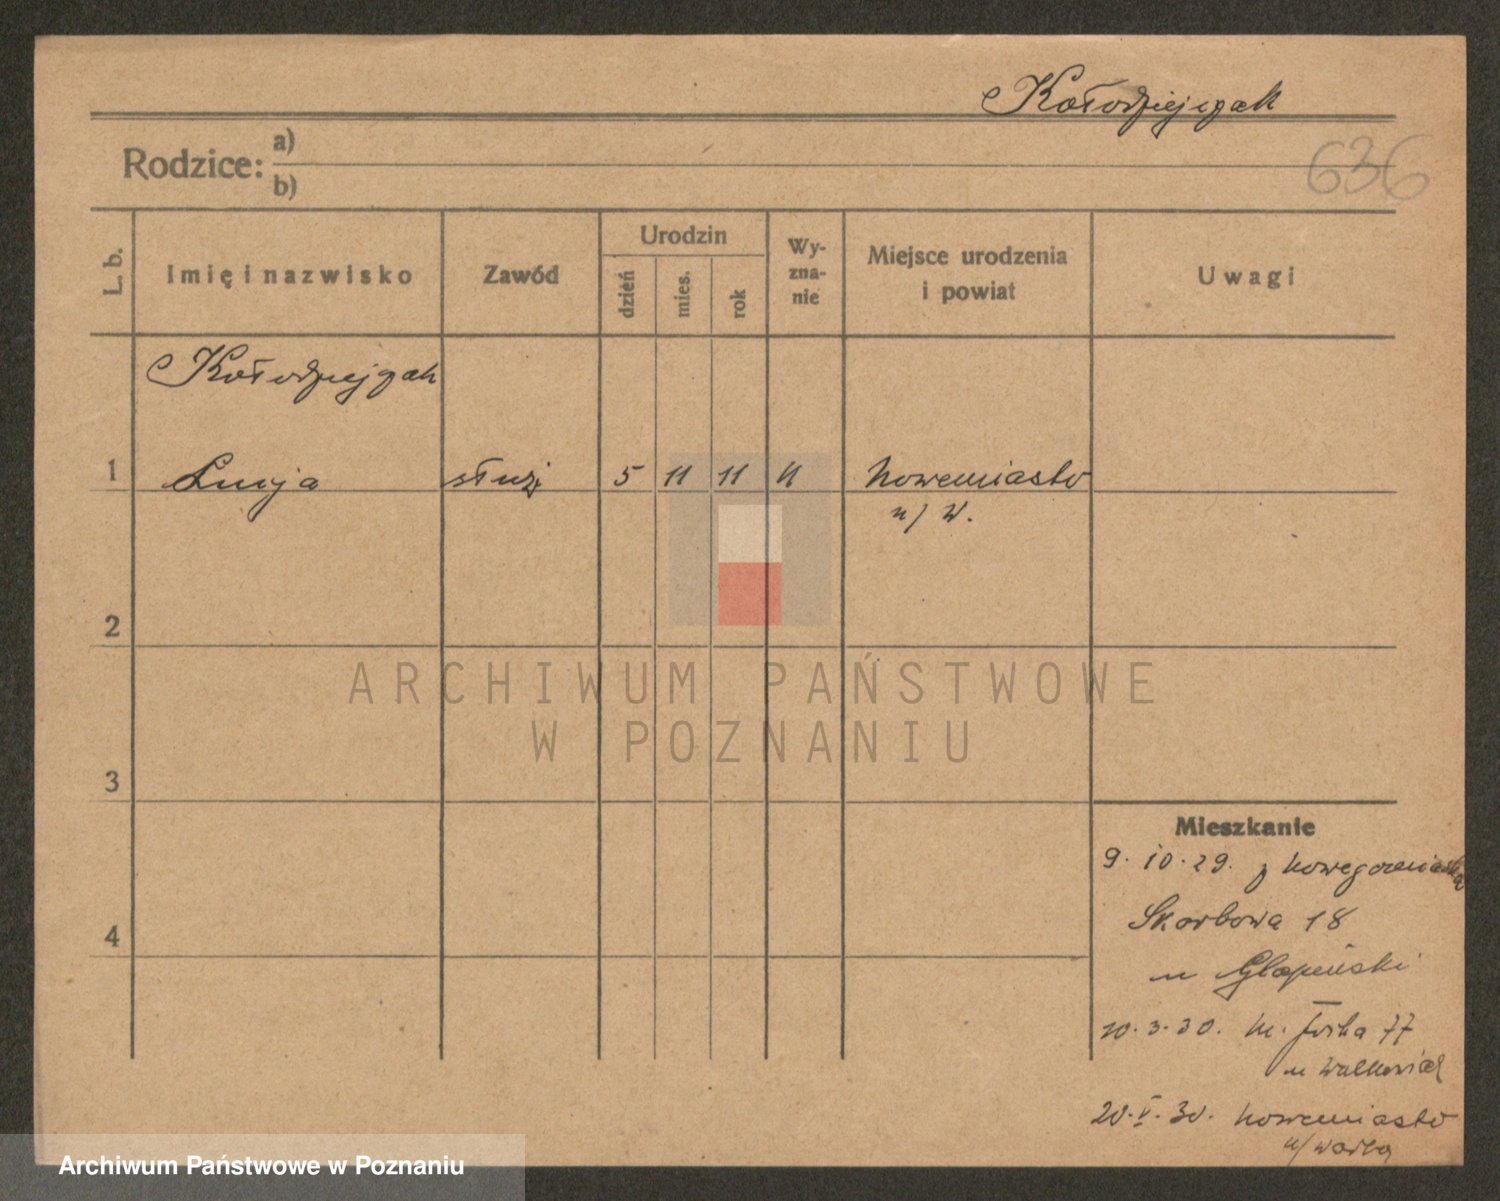 Kołodziejczak
636
Rodzice: a)
b)
L. b.
Imię i nazwisko
Zawód
Urodzin
dzień
mies.
rok
Wy-
zna-
nie
Miejsce urodzenia
i powiat
Uwagi
Kołodziejczak
1 Łucja służ. 5 11 11 K Nowemiasto
n/ W.
2
3
4
ARCHIWUM PAŃSTWOWE
W POZNANIU
Mieszkanie
9. 10. 29. z Nowegomiasta
Skarbowa 18
u Glapiński
10. 3. 30. M. Focha 77
u Walkowiak
20. V. 30. Nowemiasto
n/Wartą
Archiwum Państwowe w Poznaniu